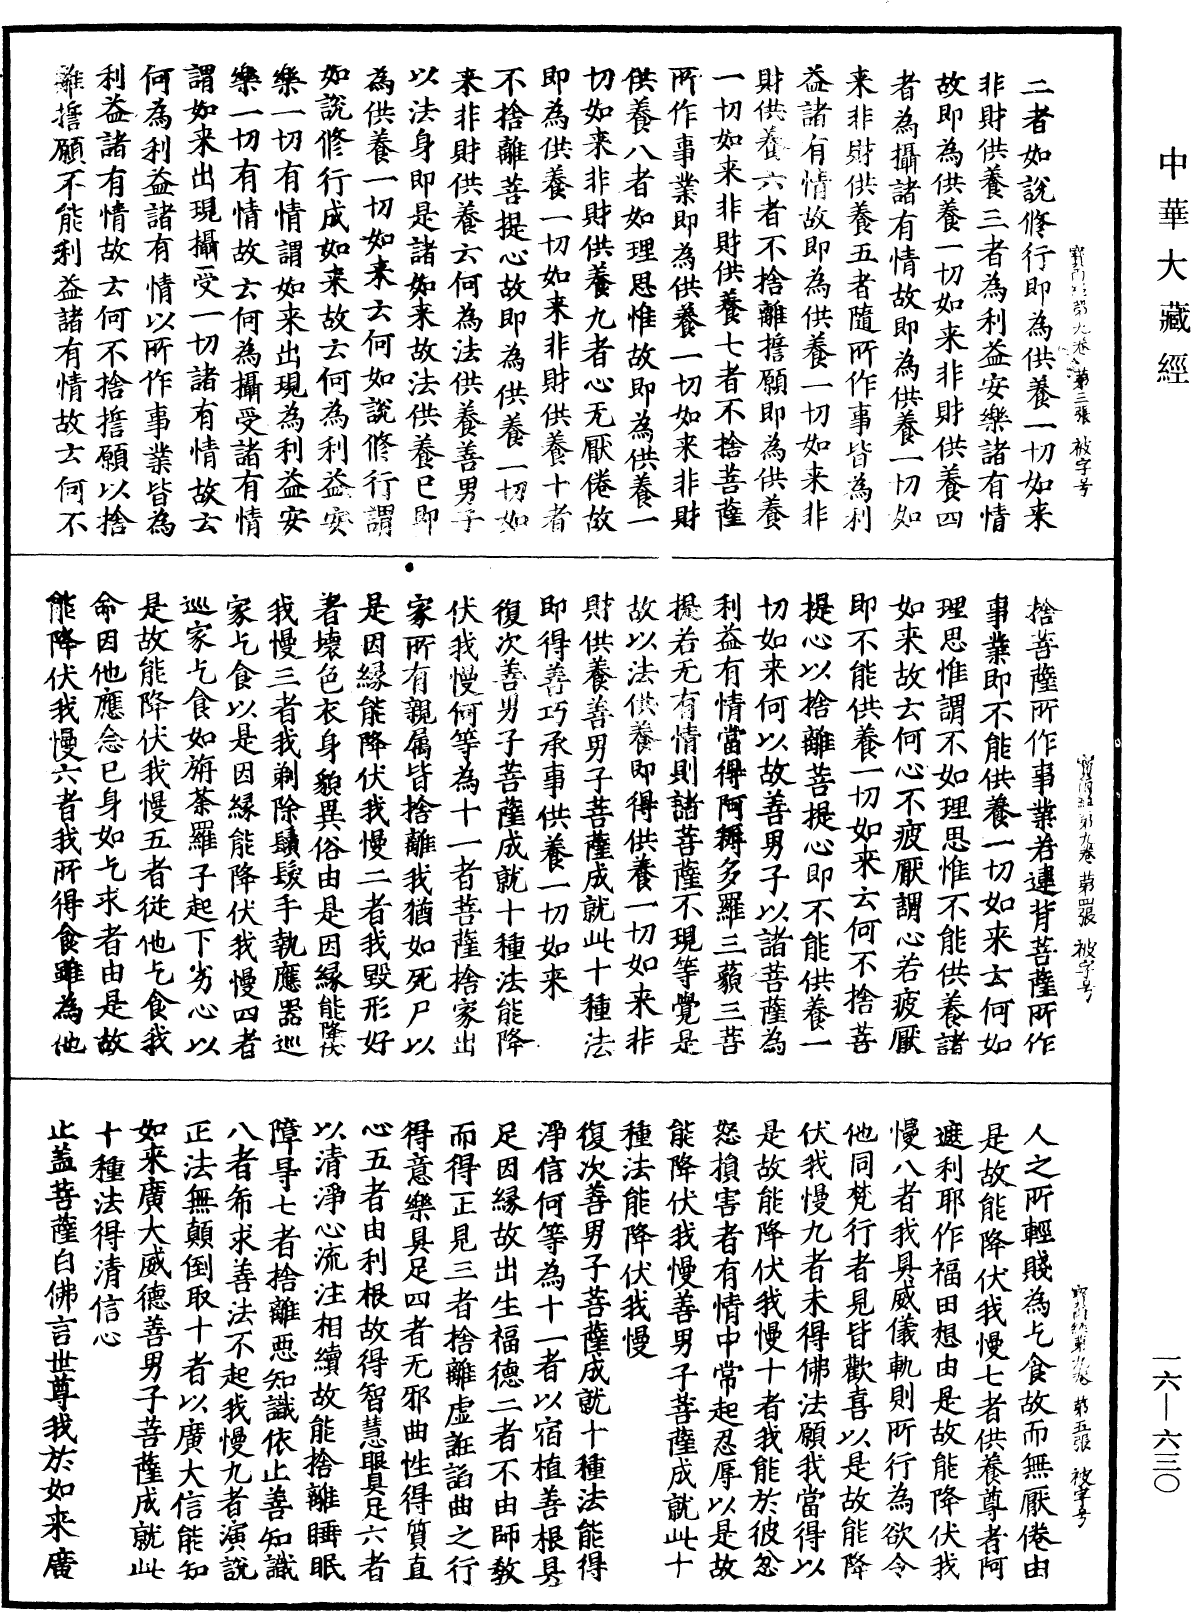 中華大藏經
二者如說修行即為供養一切如来
非財供養三者為利益安樂諸有情
故即為供養一切如来非財供養四
者為攝諸有情故即為供養一切如
来非財供養五者隨所作事皆為利
益諸有情故即為供養一切如来非
財供養六者不捨離誓願即為供養
一切如来非財供養七者不捨菩薩
所作事業即為供養一切如来非財
供養八者如理思惟故即為供養一
切如来非財供養九者心无厭倦故
即為供養一切如来非財供養十者
不捨離菩提心故即為供養一切如
来非財供養云何為法供養善男子
以法身即是諸如来故法供養已即
為供養一切如来云何如說修行謂
如說修行成如来故云何為利益安
樂一切有情謂如来出現為利益安
樂一切有情故云何為攝受諸有情
謂如来出現攝受一切諸有情故云
何為利益諸有情以所作事業皆為
利益諸有情故云何不捨誓願以捨
離誓願不能利益諸有情故云何不
第三張 被字号
捨菩薩所作事業若違背菩薩所作
事業即不能供養一切如来云何如
理思惟謂不如理思惟不能供養諸
如来故云何心不疲厭謂心若疲厭
即不能供養一切如来云何不捨菩
提心以捨離菩提心即不能供養一
切如来何以故善男子以諸菩薩為
利益有情當得阿耨多羅三藐三菩
提若无有情則諸菩薩不現等覺是
故以法供養即得供養一切如来非
財供養善男子菩薩成就此十種法
即得善巧承事供養一切如来
復次善男子菩薩成就十種法能降
伏我慢何等為十一者菩薩捨家出
家所有親属皆捨離我猶如死尸以
是因縁能降伏我慢二者我毀形好
者壞色衣身貌異俗由是因縁能降伏
我慢三者我剃除鬚髮手執應器巡
家乞食以是因縁能降伏我慢四者
巡家乞食如旃荼羅子起下劣心以
是故能降伏我慢五者從他乞食我
命因他應念已身如乞求者由是故
能降伏我慢六者我所得食雖為他
第九卷 第四張 被字号
人之所輕賤為乞食故而無厭倦由
是故能降伏我慢七者供養尊者阿
遮利耶作福田想由是故能降伏我
慢八者我具威儀軌則所行為欲令
他同梵行者見皆歡喜以是故能降
伏我慢九者未得佛法願我當得以
是故能降伏我慢十者我能於彼忿
怒損害者有情中常起忍辱以是故
能降伏我慢善男子菩薩成就此十
種法能降伏我慢
復次善男子菩薩成就十種法能得
淨信何等為十一者以宿植善根具
足因縁故出生福德二者不由師教
而得正見三者捨離虛誑諂曲之行
得意樂具足四者无邪曲性得質直
心五者由利根故得智慧具足六者
以清淨心流注相續故能捨離睡眠
障㝵七者捨離惡知識依止善知識
八者希求善法不起我慢九者演說
正法無顛倒取十者以廣大信能知
如来廣大威德善男子菩薩成就此
十種法得清信心
止盖菩薩白佛言世尊我於如来廣
第五張 被字号
一六—六三〇